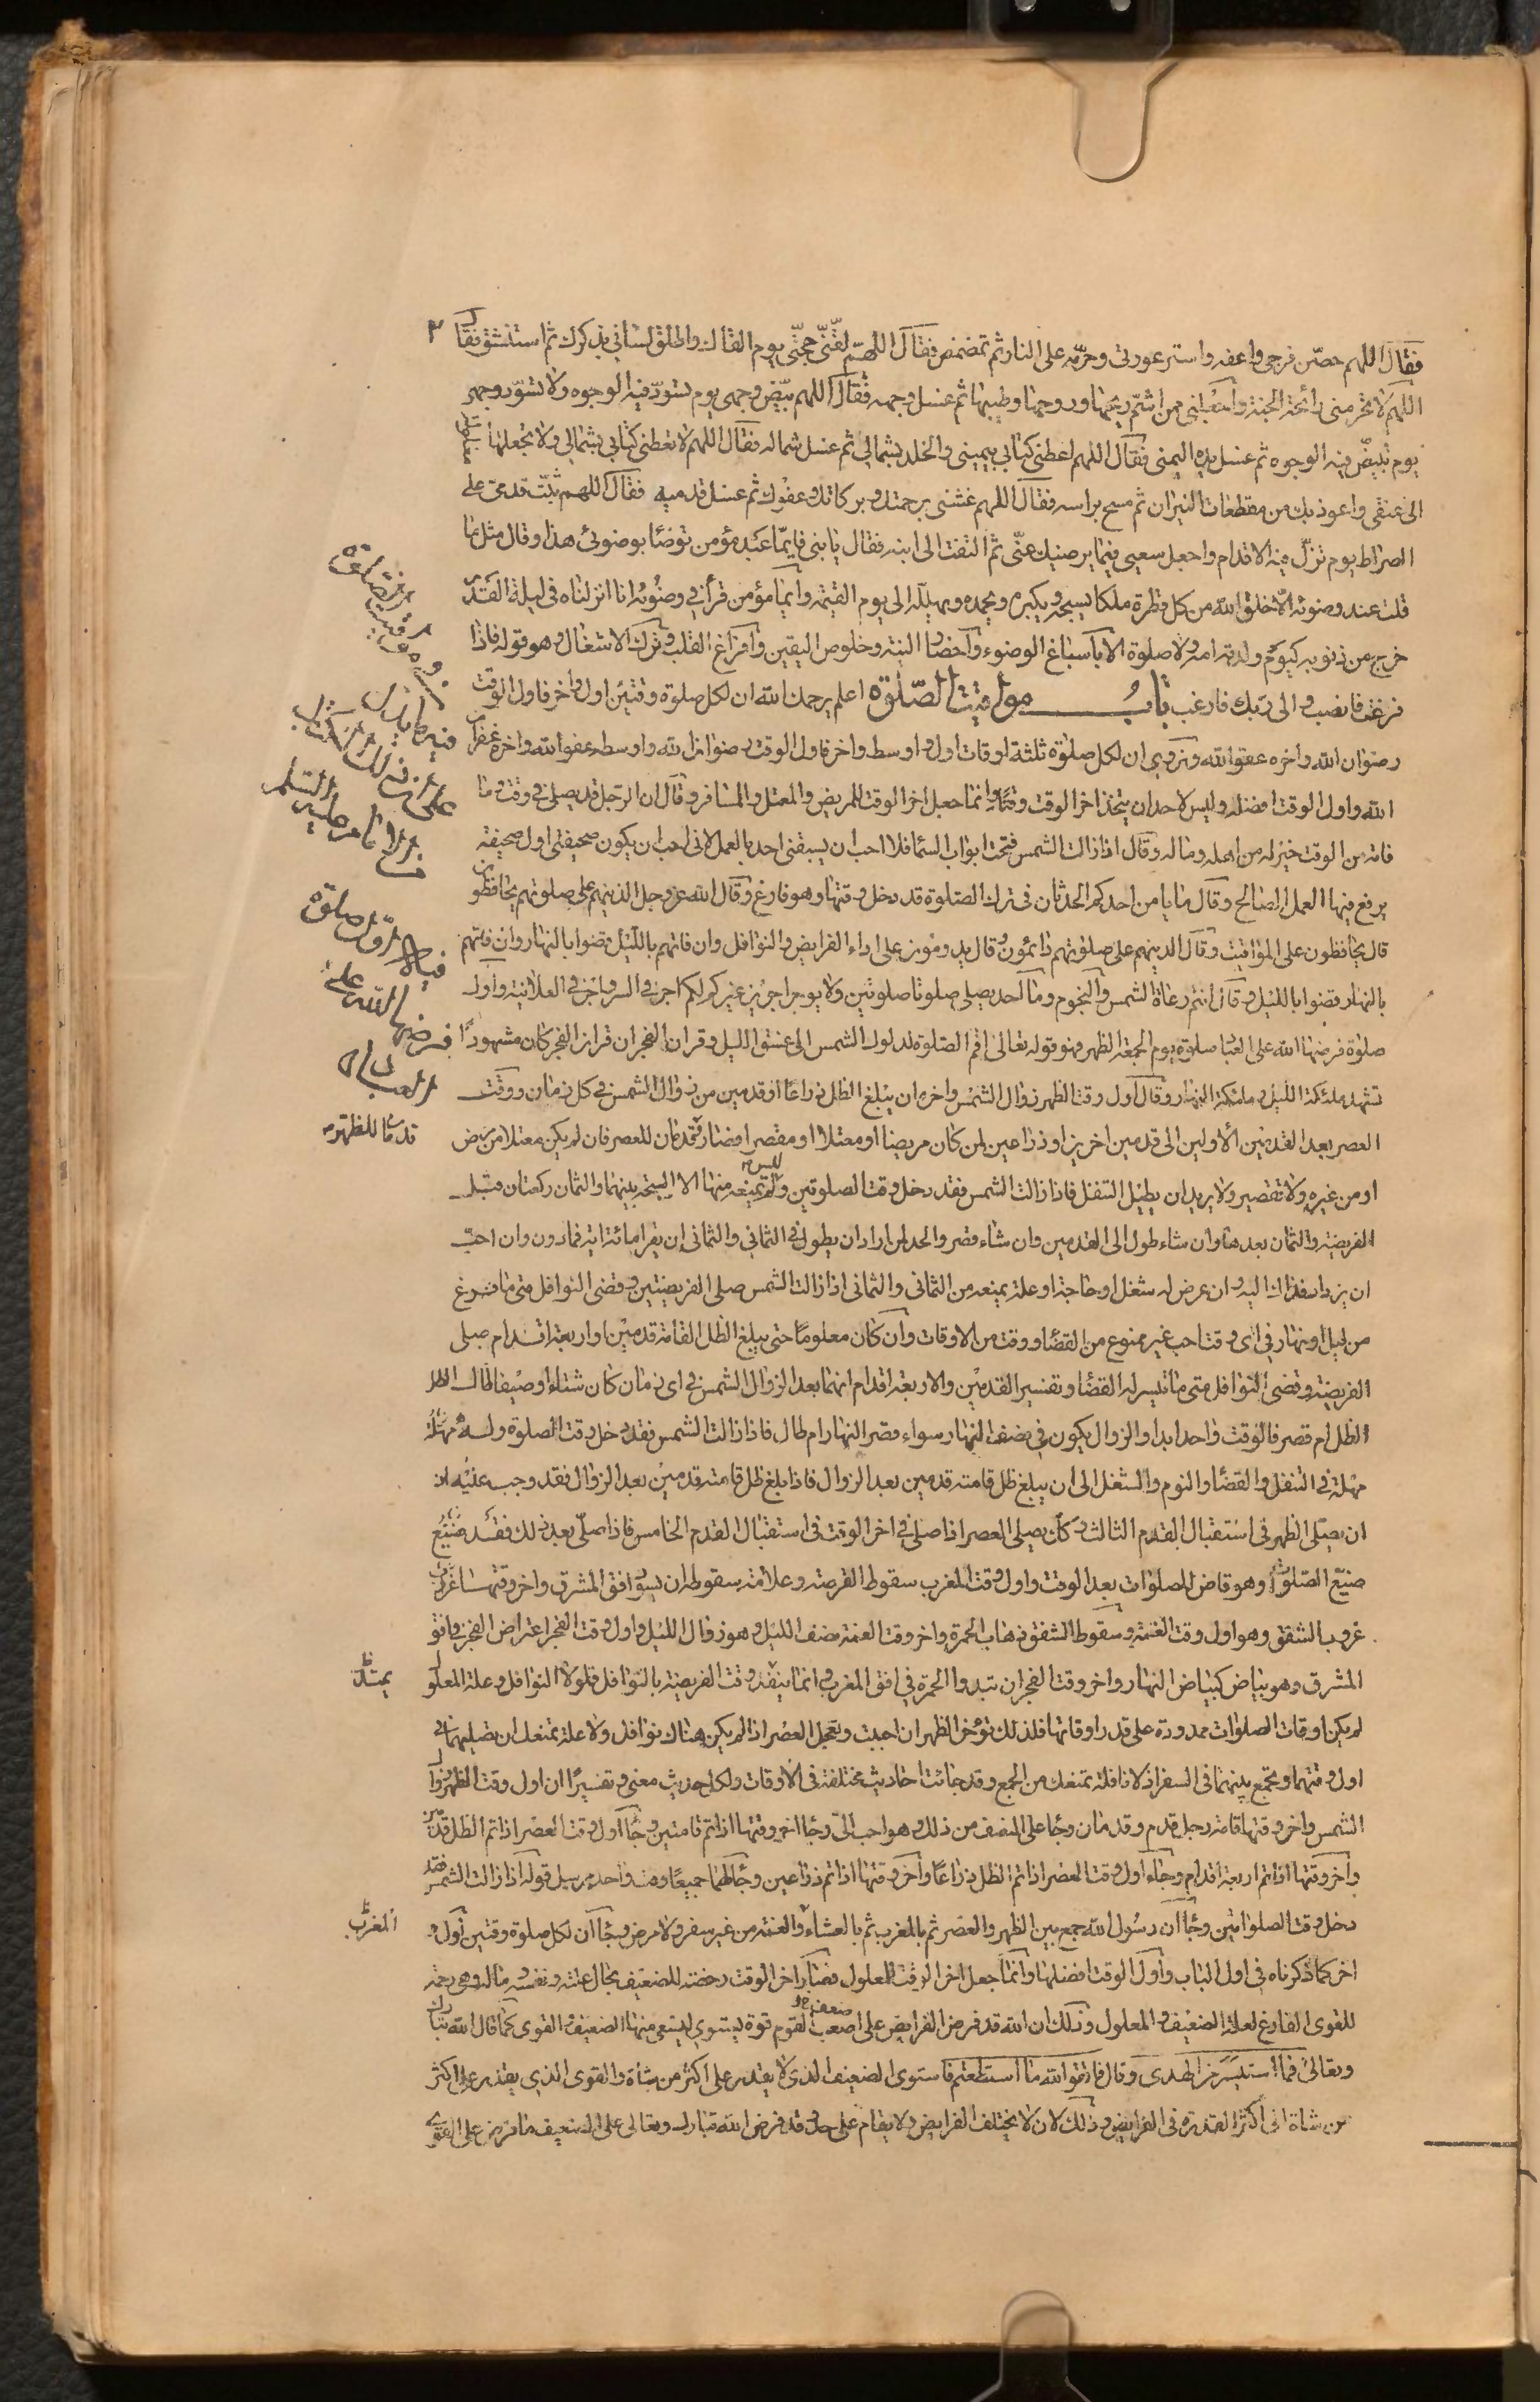 فقال اللهم حصّن فرجى واعفه واستر عورتى وحرّمه على النار ثم تمضمض فقال اللهم لقّنّى حجتّى يوم القاك واطلق لسانى بذكرك ثم استنشق فقال
اللهم لا تحرمنى رائحة الجنة واجعلنى ممن اشمّ ريحها وروحها وطيبها ثم غسل وجهه فقال اللهم بيّض وجهى يوم تسوّد فيه الوجوه ولا تسوّد وجهى
يوم تبيضّ فيه الوجوه ثم غسل يده اليمنى فقال اللهم اعطنى كتابى بيمينى والخلد بشمالى ثم غسل شماله فقال اللهم لا تعطنى كتابى بشمالى ولا تجعلها
الى عنقى واعوذ بك من مقطعات النيران ثم مسح براسه فقال اللهم غشنى برحمتك وبركاتك وعفوك ثم غسل قدميه فقال اللهم ثبّت قدمى على
الصراط يوم تزلّ فيه الاقدام واجعل سعيى فيما يرضيك عنّى ثم التفت الى ابنه فقال يا بنى فايمّا عبد مؤمن توضّا بوضوئى هذا وقال مثل ما
قلت عند وضوئه الّا خلق الله من كل قطرة ملكا يسبحه ويكبره ويحمده ويهلّله الى يوم القيمة وايما مؤمن قرأ فى وضوئه انا انزلناه فى ليلة القدر
خرج من ذنوبه كيوم ولدته امه ولا صلوة الا باسباغ الوضوء واحضار النية وخلوص اليقين وافراغ القلب وترك الاشغال وهو قوله فاذا
فرغت فانصب والى ربك فارغب باب مواقيت الصّلوة اعلم يرحمك الله ان لكل صلوة وقتين اول واخر فاول الوقت
رضوان الله واخره عفو الله ونروى ان لكل صلوة ثلثة اوقات اول واوسط واخر فاول الوقت رضوان الله واوسطه عفو الله واخره غفران
الله واول الوقت افضله وليس لاحد ان يتخذ اخر الوقت وقتا وانما جعل اخر الوقت للمريض والمعتل والمسافر وقال ان الرجل قد يصلى فى وقت وما
فاته من الوقت خير له من اهله وماله وقال اذا زالت الشمس فتحت ابواب السماء فلا احب ان يسبقنى احد بالعمل لانى احب ان يكون صحيفتى اول صحيفة
يرفع فيها العمل الصالح وقال ما يامن احدكم الحدثان فى ترك الصلوة قد دخل وقتها وهو فارغ وقال الله عز وجل الذينهم على صلوتهم يحافظون
قال يحافظون على المواقيت وقال الذينهم على صلوتهم دائمون قال يدومون على اداء الفرايض والنوافل وان فاتهم بالليل قضوا بالنهار وان فاتهم
بالنهار قضوا بالليل وقال انتم رعاة الشمس والنجوم وما احد يصلى صلوتين ولا يوجر اجرين غيركم لكم اجر فى السر واجر فى العلانية واول
صلوة فرضها الله على العباد صلوة يوم الجمعة الظهر فهو قوله تعالى اقم الصلوة لدلوك الشمس الى غسق الليل وقران الفجر ان قران الفجر كان مشهودا
تشهد ملئكة الليل وملئكة النهار وقال اول وقت الظهر زوال الشمس واخره ان يبلغ الظل ذراعا او قدمين من زوال الشمس فى كل زمان ووقت
العصر بعد القدمين الاولين الى قدمين اخرين او ذراعين لمن كان مريضا او معتلا او مقصرا فصار قدمان للعصر فان لم يكن معتلا من مرض
او من غيره ولا تقصير ولا يريد ان يطيل التنفل فاذا زالت الشمس فقد دخل وقت الصلوتين وليس يمنعه منها الا السبحة بينهما والثمان ركعات قبل
الفريضة والثمان بعدها وان شاء طول الى القدمين وان شاء قصر والحد لمن اراد ان يطول فى الثمانى والثمانى ان يقرا مائة اية فما دون وان احب
ان يزداد فذاك اليه وان عرض له شغل او حاجة او علة يمنعه من الثمانى والثمانى اذا زالت الشمس صلى الفريضتين وقضى النوافل متى ما فرغ
من ليل او نهار فى اى وقت احب غير ممنوع من القضاء ووقت من الاوقات وان كان معلوما حتى يبلغ الظل القامة قدمين او اربعة اقدام صلى
الفريضة وقضى النوافل متى ما تيسر له القضا وتفسير القدمين والاربعة اقدام انهما بعد الزوال الشمس فى اى زمان كان شتاء او صيفا طال الظل
الظل ام قصر فالوقت واحد ابدا والزوال يكون فى نصف النهار سواء قصر النهار ام طال فاذا زالت الشمس فقد دخل وقت الصلوة وله مهلة
مهلة فى التنفل والقضاء والنوم والشغل الى ان يبلغ ظل قامته قدمين بعد الزوال فاذا بلغ ظل قامته قدمين بعد الزوال فقد وجب عليه ان
ان يصلى الظهر فى استقبال القدم الثالث وكك يصلى العصر اذا صلى فى اخر الوقت فى استقبال القدم الخامس فاذا صلّى بعد ذلك فقد ضيّع
ضيّع الصلوة وهو قاض للصلوات بعد الوقت واول وقت المغرب سقوط القرصة وعلامة سقوطه ان يسود افق المشرق واخر وقتها غروب
غروب الشفق وهو اول وقت العتمة وسقوط الشفق ذهاب الحمرة واخر وقت العتمة نصف الليل وهو زوال الليل واول وقت الفجر اعتراض الفجر فى افق
المشرق وهو بياض كبياض النهار واخر وقت الفجر ان تبدوا الحمرة فى افق المغرب وانما يمتد وقت الفريضة بالنوافل فلولا النوافل وعلة المعلول
لم يكن اوقات الصلوات ممدودة على قدر اوقاتها فلذلك تؤخر الظهر ان احببت وتعجل العصر اذا لم يكن هناك نوافل ولا علة تمنعك ان تصليهما فى
اول وقتهما وتجمع بينهما فى السفر اذ لا نافلة تمنعك من الجمع وقد جائت احاديث مختلفة فى الاوقات ولكل حديث معنى وتفسيرا ان اول وقت الظهر زوال
الشمس واخر وقتها قامة رجل قدم وقدمان وجاء على النصف من ذلك وهو احب الىّ وجاء اخر وقتها اذا تم قامتين وجاء اول وقت العصر اذا تم الظل قدمين
واخر وقتها اذا تم اربعة اقدام وجاء اول وقت العصر اذا تم الظل ذراعا واخر وقتها اذا تم ذراعين وجاء لهما جميعا وقت واحد مرسل قوله اذا زالت الشمس فقد
دخل وقت الصلواتين وجاء ان رسول الله جمع بين الظهر والعصر ثم بالمغرب ثم بالعشاء والعتمة من غير سفر ولا مرض وجاء ان لكل صلوة وقتين اول و
اخر كما ذكرناه فى اول الباب واول الوقت افضلها وانما جعل اخر الوقت للمعلول فصار اخر الوقت رخصة للضعيف بحال علته ونفسه وماله وهى رحمة
للقوى الفارغ لعلة الضعيف والمعلول وذلك ان الله قد فرض الفرايض على اضعف القوم قوة ليستوى ليسعى منها الضعيف والقوى كما قال الله تبارك
وتعالى فما استيسر من الهدى وقال فاتقوا الله ما استطعتم فاستوى الضعيف الذى لا يقدر على اكثر من شاة والقوى الذى يقدر على اكثر
من شاة الى اكثر القدرة فى الفرايض وذلك لان لا يختلف الفرايض ولا يقام على حد وقد فرض الله تبارك وتعالى على الضعيف ما فرض على القوى
فيه ما يدل
على ان ذلك الكتاب
للامام عليه السلم
فى ان اول صلوة
فرضها الله على
العباد
قدمان للظهر
يمتد
المغرب